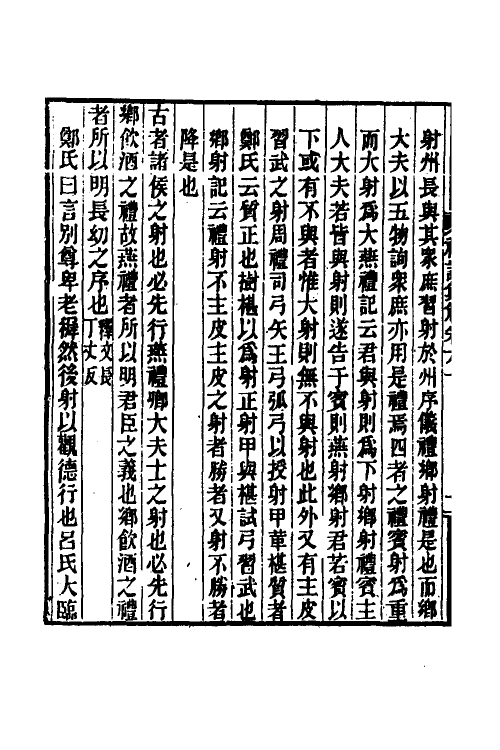 射州長與其衆庶習射於州序儀禮鄉射禮是也而鄉
大夫以五物詢衆庶亦用是禮焉四者之禮賓射爲重
而大射爲大燕禮記云君與射則爲下射鄉射禮賓主
人大夫若皆與射則遂告于賓則燕射鄉射君若賓以
下或有不與者惟大射則無不與射也此外又有主皮
習武之射周禮司弓矢王弓弧弓以授射甲革椹質者
鄭氏云質正也樹椹以爲射正射甲與椹試弓習武也
鄉射記云禮射不主皮主皮之射者勝者又射不勝者
降是也
古者諸侯之射也必先行燕禮鄉大夫士之射也必先行
鄉飲酒之禮故燕禮者所以明君臣之義也鄉飲酒之禮
者所以明長幼之序也釋文長丁丈反
鄭氏曰言別尊卑老穉然後射以觀德行也呂氏大臨